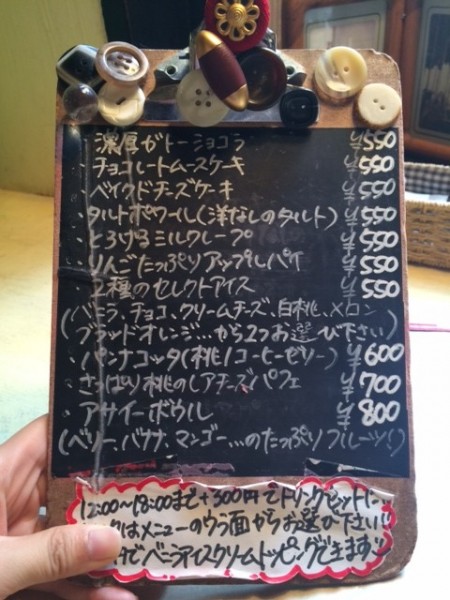 濃厚ガトーショコラ ¥550
・チョコレートムースケーキ ¥550
・ベイクドチーズケーキ ¥550
・タルトポワール(洋なしのタルト) ¥550
・とろけるミルクレープ ¥550
・りんごたっぷりアップルパイ ¥550
・2種のセレクトアイス ¥550
(バニラ、チョコ、クリームチーズ、白桃、メロン
ブラッドオレンジ...から2つお選び下さい)
・パンナコッタ(桃/コーヒーゼリー) ¥600
・さっぱり桃のレアチーズパフェ ¥700
・アサイーボウル ¥800
(ベリー、バナナ、マンゴー...のたっぷりフルーツ!)
12:00〜18:00まで+300円でドリンクセットに
クはメニューのウラ面からお選び下さい!
でバニラアイスクリームトッピングできます